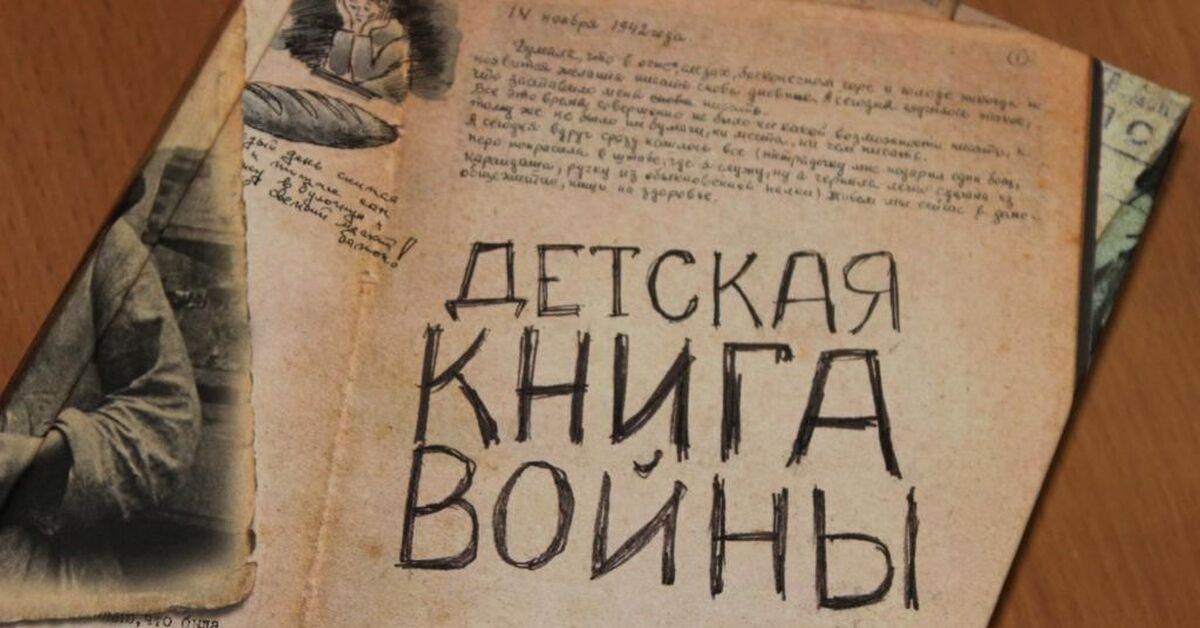 14 ноября 1942 года
Думала, что в огне, слезах, бесконечном горе и голоде никогда не
появится желания писать снова дневник. А сегодня случилось такое,
что заставило меня снова писать.
Все это время совершенно не было никакой возможности писать, к
тому же не было ни бумаги, ни места, ни чем писать.
А сегодня вдруг сразу нашлось все (тетрадочку мне подарил один боец,
перо попросила в штабе, где я служу, ну а чернила легко сделала из
карандаша, ручку из обыкновенной палки) Живем мы сейчас в
общежитии, пишу на здоровье.
день снится
сон
в булочную и
ДЕТСКАЯ
КНИГА
ВОЙНЫ
что была